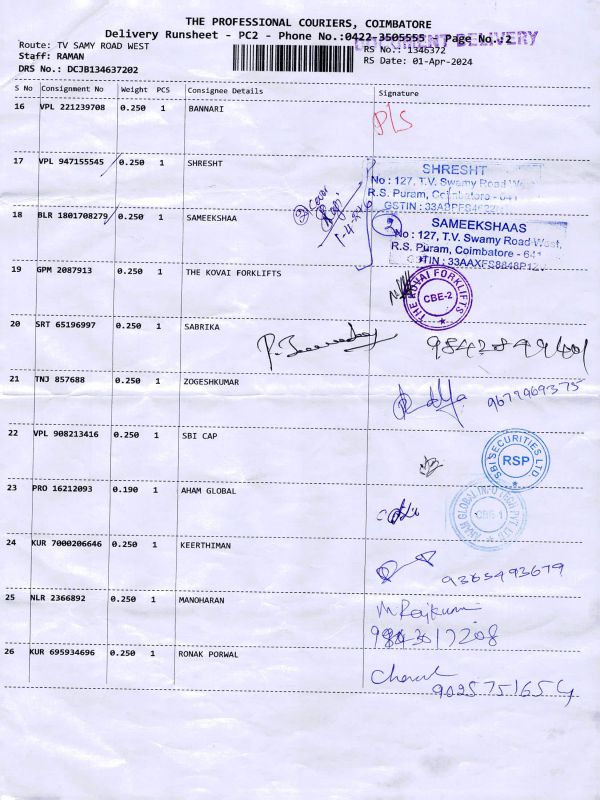 THE PROFESSIONAL COURIERS, COIMBATORE
Delivery Runsheet - PC2 - Phone No.:0422-3505555 Page No.:2
DELIVERY
Route: TV SAMY ROAD WEST RS No.: 1346372
Staff: RAMAN RS Date: 01-Apr-2024
DRS No.: DCJB134637202
S No Consignment No Weight PCS Consignee Details Signature
16 VPL 221239708 0.250 1 BANNARI
P/S
17 VPL 947155545 0.250 1 SHRESHT
SHRESHT
No : 127, T.V. Swamy Road West
R.S. Puram, Coimbatore - 641
GSTIN :
1-4-24
18 BLR 1801708279 0.250 1 SAMEEKSHAA
2
SAMEEKSHAAS
No : 127, T.V. Swamy Road West,
R.S. Puram, Coimbatore - 641
GSTIN : 33AAXFS8848P1Z
19 GPM 2087913 0.250 1 THE KOVAI FORKLIFTS
THE KOVAI FORKLIFTS
CBE-2
20 SRT 65196997 0.250 1 SABRIKA
21 TNJ 857688 0.250 1 ZOGESHKUMAR
9677969375
22 VPL 908213416 0.250 1 SBI CAP
SBI SECURITIES LTD
RSP
23 PRO 16212093 0.190 1 AHAM GLOBAL
CBE-1
24 KUR 7000206646 0.250 1 KEERTHIMAN
9365493679
25 NLR 2366892 0.250 1 MANOHARAN
M Rajkumar
9843017208
26 KUR 695934696 0.250 1 RONAK PORWAL
9025751654